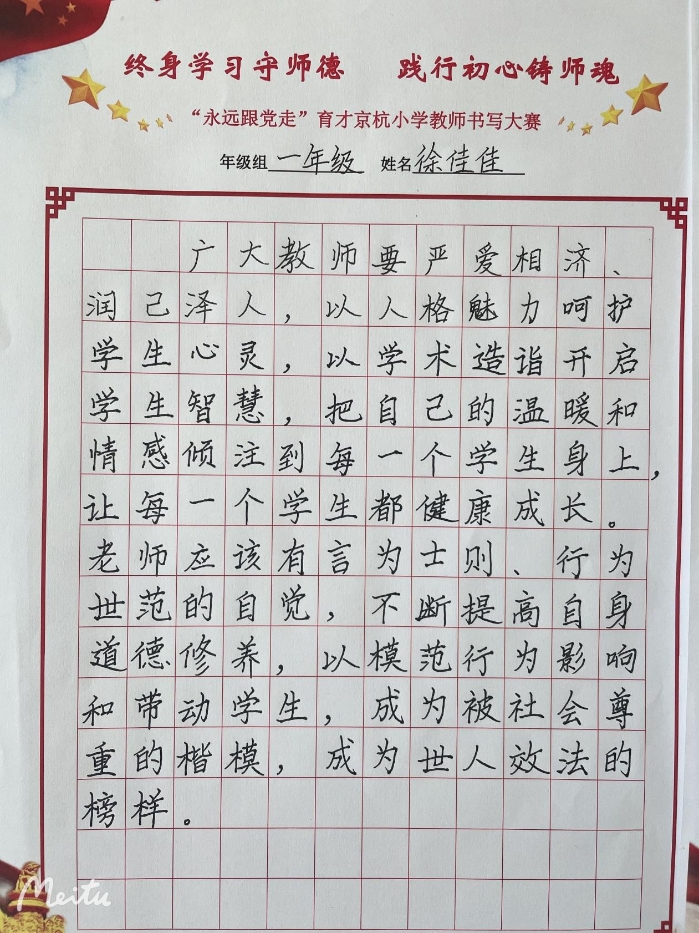 终身学习守师德 践行初心铸师魂
“永远跟党走”育才京杭小学教师书写大赛
年级组 一年级 姓名 徐佳佳
广大教师要严爱相济、
润己泽人，以人格魅力呵护
学生心灵，以学术造诣开启
学生智慧，把自己的温暖和
情感倾注到每一个学生身上，
让每一个学生都健康成长。
老师应该有言为士则、行为
世范的自觉，不断提高自身
道德修养，以模范行为影响
和带动学生，成为被社会尊
重的楷模，成为世人效法的
榜样。
Meitu